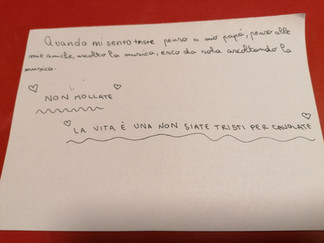 Quando mi sento triste penso a mio papà, penso alle
mie amiche, ascolto la musica, esco da sola ascoltando la
musica.
NON MOLLATE
LA VITA È UNA NON SIATE TRISTI PER